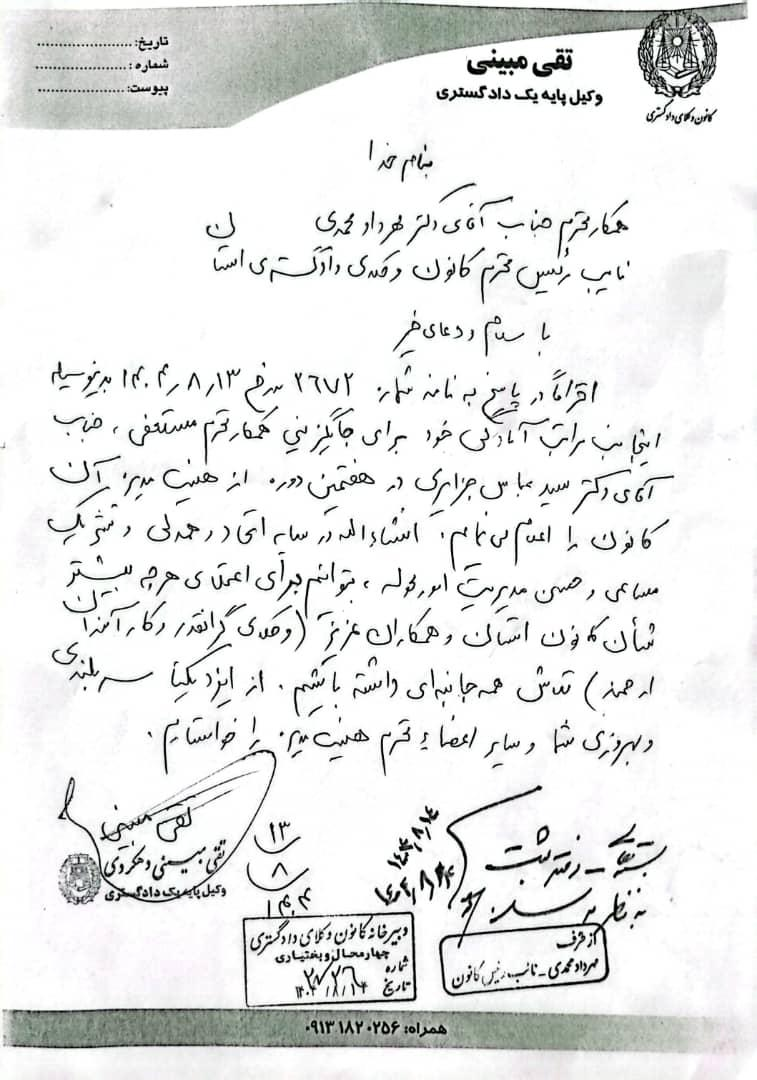 تاریخ: ......................
شماره: ......................
پیوست: ......................
تقی مبینی
وکیل پایه یک دادگستری
کانون وکلای دادگستری
بنام خدا
همکار محترم جناب آقای دکتر مهرداد محمدی
نایب رئیس محترم کانون وکلای دادگستری استان
با سلام و دعای خیر
احتراماً در پاسخ به نامه شماره ۲۶۷۲ مورخ ۱۴۰۴٫۸٫۱۳ بدینوسیله
اینجانب مراتب آمادگی خود برای جایگزینی همکار محترم مستعفی، جناب
آقای دکتر سید عباس جزایری در هفتمین دوره از هیئت مدیره آن
کانون را اعلام می نمایم. انشاءالله در سایه اتحاد و همدلی و تشریک
مساعی و حسن مدیریت امور محوله، بتوانیم برای اعتلای هرچه بیشتر
شأن کانون استان و همکاران عزیز (وکلای گرانقدر و کارآموزان
ارجمند) تلاش همه جانبه‌ای داشته باشیم. از ایزد یکتا سربلندی
و بهروزی شما و سایر اعضاء محترم هیئت مدیره را خواستارم.
تقی مبینی
تقی مبینی دهکردی
وکیل پایه یک دادگستری
۱۳
۸
۱۴۰۴
۱۴۰۴٫۸٫۱۴
۱۴۰۴/۸/۱۴
ثبت
به نظر می رسد
از طرف
مهرداد محمدی - نائب رئیس کانون
دبیرخانه کانون وکلای دادگستری
چهارمحال و بختیاری
شماره ۲۷۲۶
تاریخ ۱۴۰۴/۸/۱۴
همراه: ۰۹۱۳۱۸۲۰۲۵۶